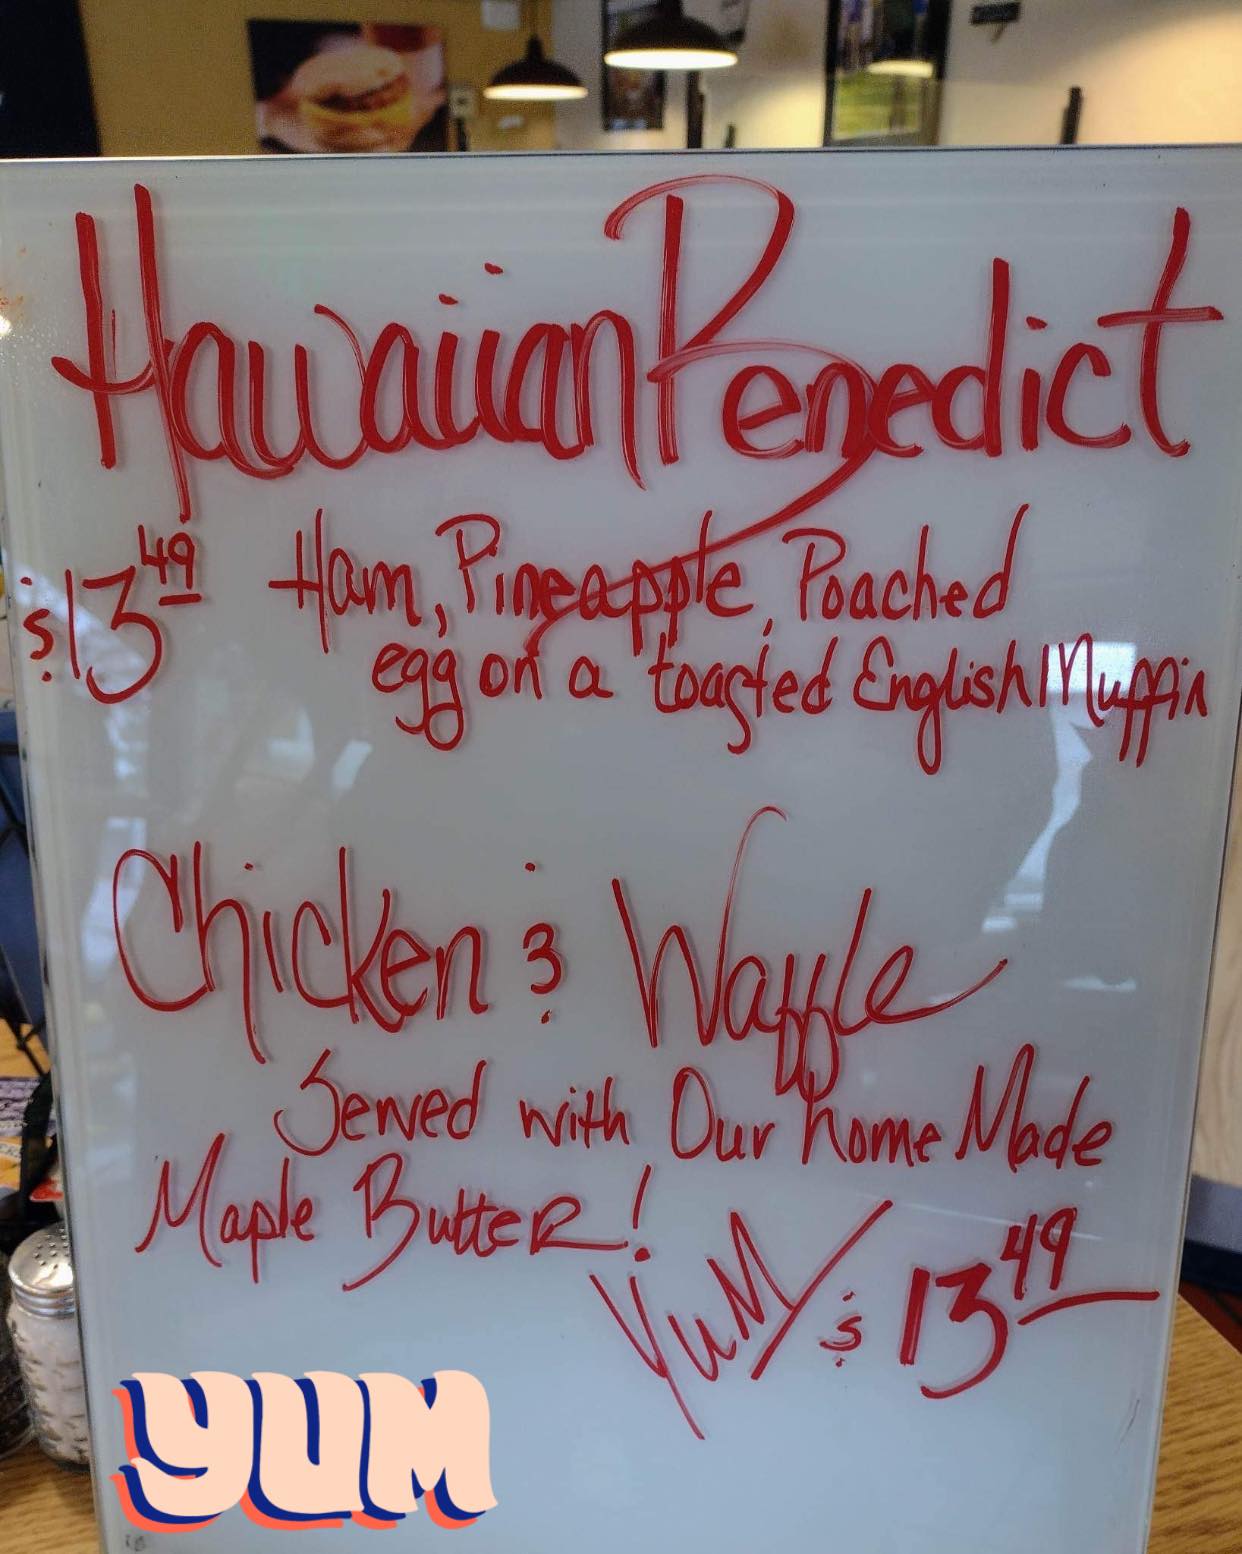 Hawaiian Benedict
$13.49 Ham, Pineapple, Poached
egg on a toasted English Muffin
Chicken & Waffle
Served with Our home Made
Maple Butter!
Yum $13.49
YUM